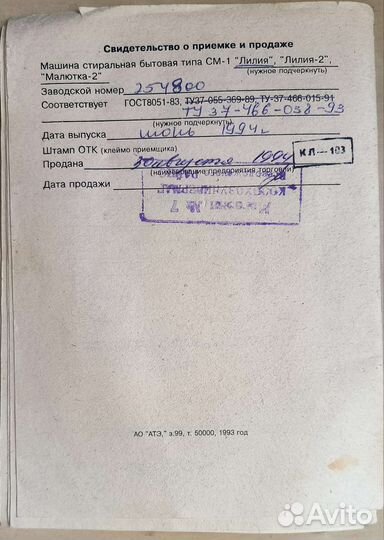 Свидетельство о приемке и продаже
Машина стиральная бытовая типа СМ-1 "Лилия", "Лилия-2",
"Малютка-2" (нужное подчеркнуть)
Заводской номер 254800
Соответствует ГОСТ8051-83, ТУ37-055-369-89, ТУ-37-466-015-91
ТУ 37-466-038-93
(нужное подчеркнуть)
Дата выпуска июнь 1994г
Штамп ОТК (клеймо приемщика) КЛ—103
Продана августа 1994
(наименование предприятия торговли)
Дата продажи
№ 7
АО "АТЭ," з.99, т. 50000, 1993 год
Avito